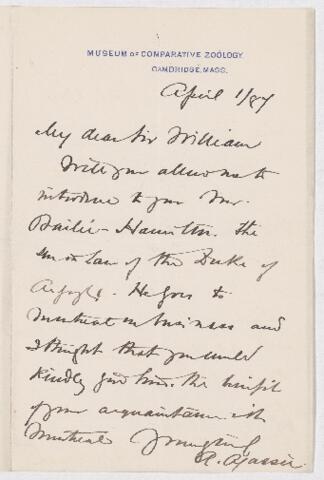 MUSEUM OF COMPARATIVE ZOÖLOGY.
CAMBRIDGE, MASS.
April 1/87
My dear Sir William
Will you allow me to
introduce to you Mr.
Bailie-Hamilton. the
son in law of the Duke of
Argyle. He goes to
Montreal on business and
I thought that you would
kindly give him the benefit
of your acquaintance with
Montreal Yours truly
A. Agassiz